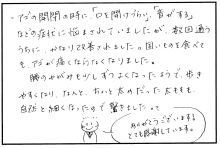 ・アゴの開閉の時に、「口を開けづらい」「音がする」
などの症状に悩まされていましたが、数回通う
うちに、かなり改善されました。固い物を食べて
も、アゴが痛くならなくなりました。
腰のゆがみも少しずつよくなったようで、歩き
やすくなり、なんと、ちょっと太めだった太ももも、
自然と細くなったので驚きました。っ
ありがとうございます
とても感謝しています。